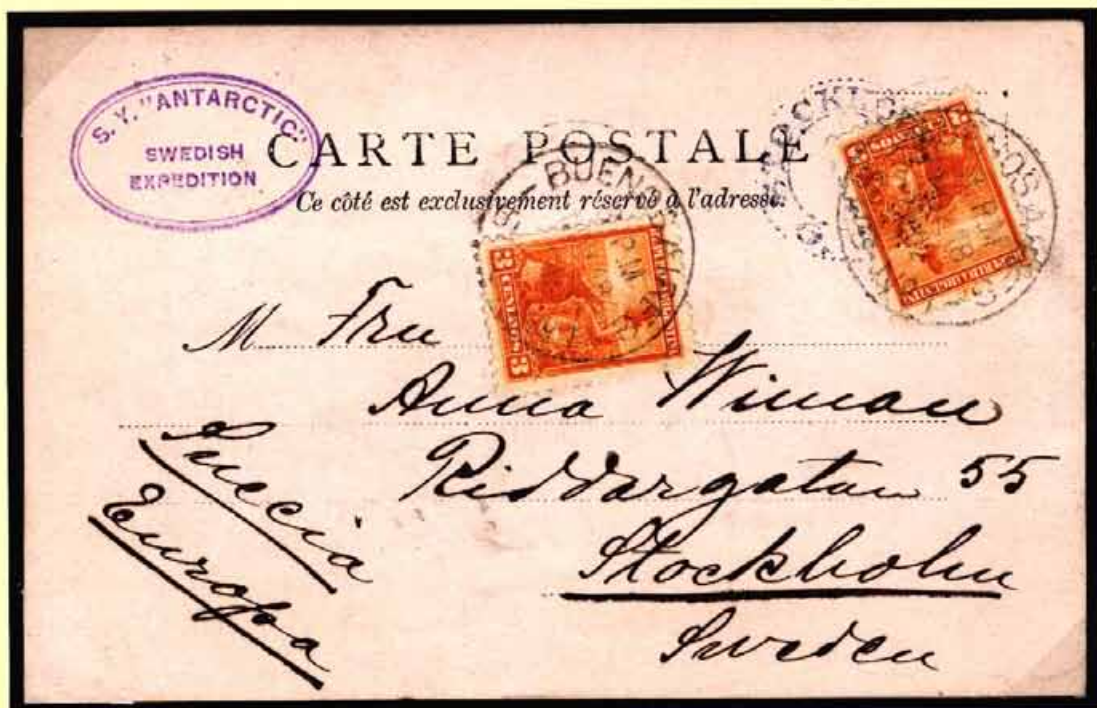 S. Y. "ANTARCTIC"
SWEDISH
EXPEDITION
CARTE POSTALE
Ce côté est exclusivement réservé à l'adresse.
BUENOS AIRES
3 CENTAVOS 3
REPUBLICA ARGENTINA
M Fru
Anna Wiman
Riddargatan 55
Stockholm
Sweden
Suecia
Europa